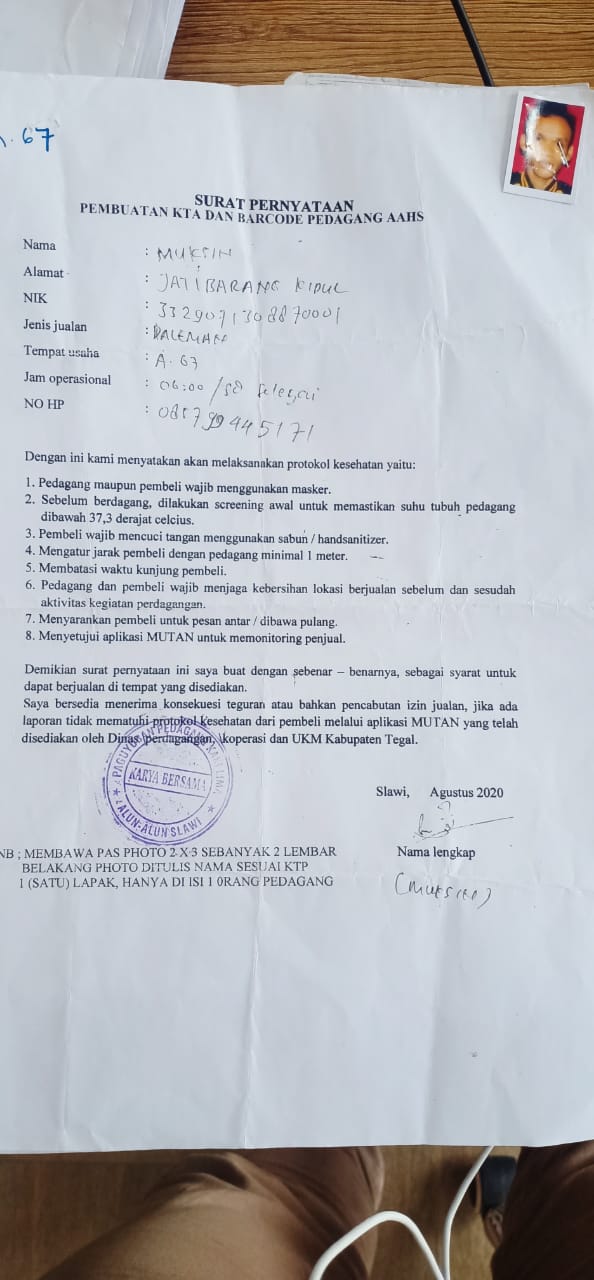 A. 67
SURAT PERNYATAAN
PEMBUATAN KTA DAN BARCODE PEDAGANG AAHS
Nama : MUKSIN
Alamat : JATIBARANG KIDUL
NIK : 3329071308870001
Jenis jualan : DALEMAN
Tempat usaha : A. 67
Jam operasional : 06:00 / sd selesai
NO HP :
Dengan ini kami menyatakan akan melaksanakan protokol kesehatan yaitu:
1. Pedagang maupun pembeli wajib menggunakan masker.
2. Sebelum berdagang, dilakukan screening awal untuk memastikan suhu tubuh pedagang
dibawah 37,3 derajat celcius.
3. Pembeli wajib mencuci tangan menggunakan sabun / handsanitizer.
4. Mengatur jarak pembeli dengan pedagang minimal 1 meter.
5. Membatasi waktu kunjung pembeli.
6. Pedagang dan pembeli wajib menjaga kebersihan lokasi berjualan sebelum dan sesudah
aktivitas kegiatan perdagangan.
7. Menyarankan pembeli untuk pesan antar / dibawa pulang.
8. Menyetujui aplikasi MUTAN untuk memonitoring penjual.
Demikian surat pernyataan ini saya buat dengan sebenar – benarnya, sebagai syarat untuk
dapat berjualan di tempat yang disediakan.
Saya bersedia menerima konsekuesi teguran atau bahkan pencabutan izin jualan, jika ada
laporan tidak mematuhi protokol kesehatan dari pembeli melalui aplikasi MUTAN yang telah
disediakan oleh Dinas perdagangan, koperasi dan UKM Kabupaten Tegal.
PAGUYUBAN PEDAGANG KAKI LIMA
KARYA BERSAMA
ALUN-ALUN SLAWI
Slawi, Agustus 2020
Nama lengkap
(MUKSIN)
NB ; MEMBAWA PAS PHOTO 2 X 3 SEBANYAK 2 LEMBAR
BELAKANG PHOTO DITULIS NAMA SESUAI KTP
1 (SATU) LAPAK, HANYA DI ISI 1 0RANG PEDAGANG